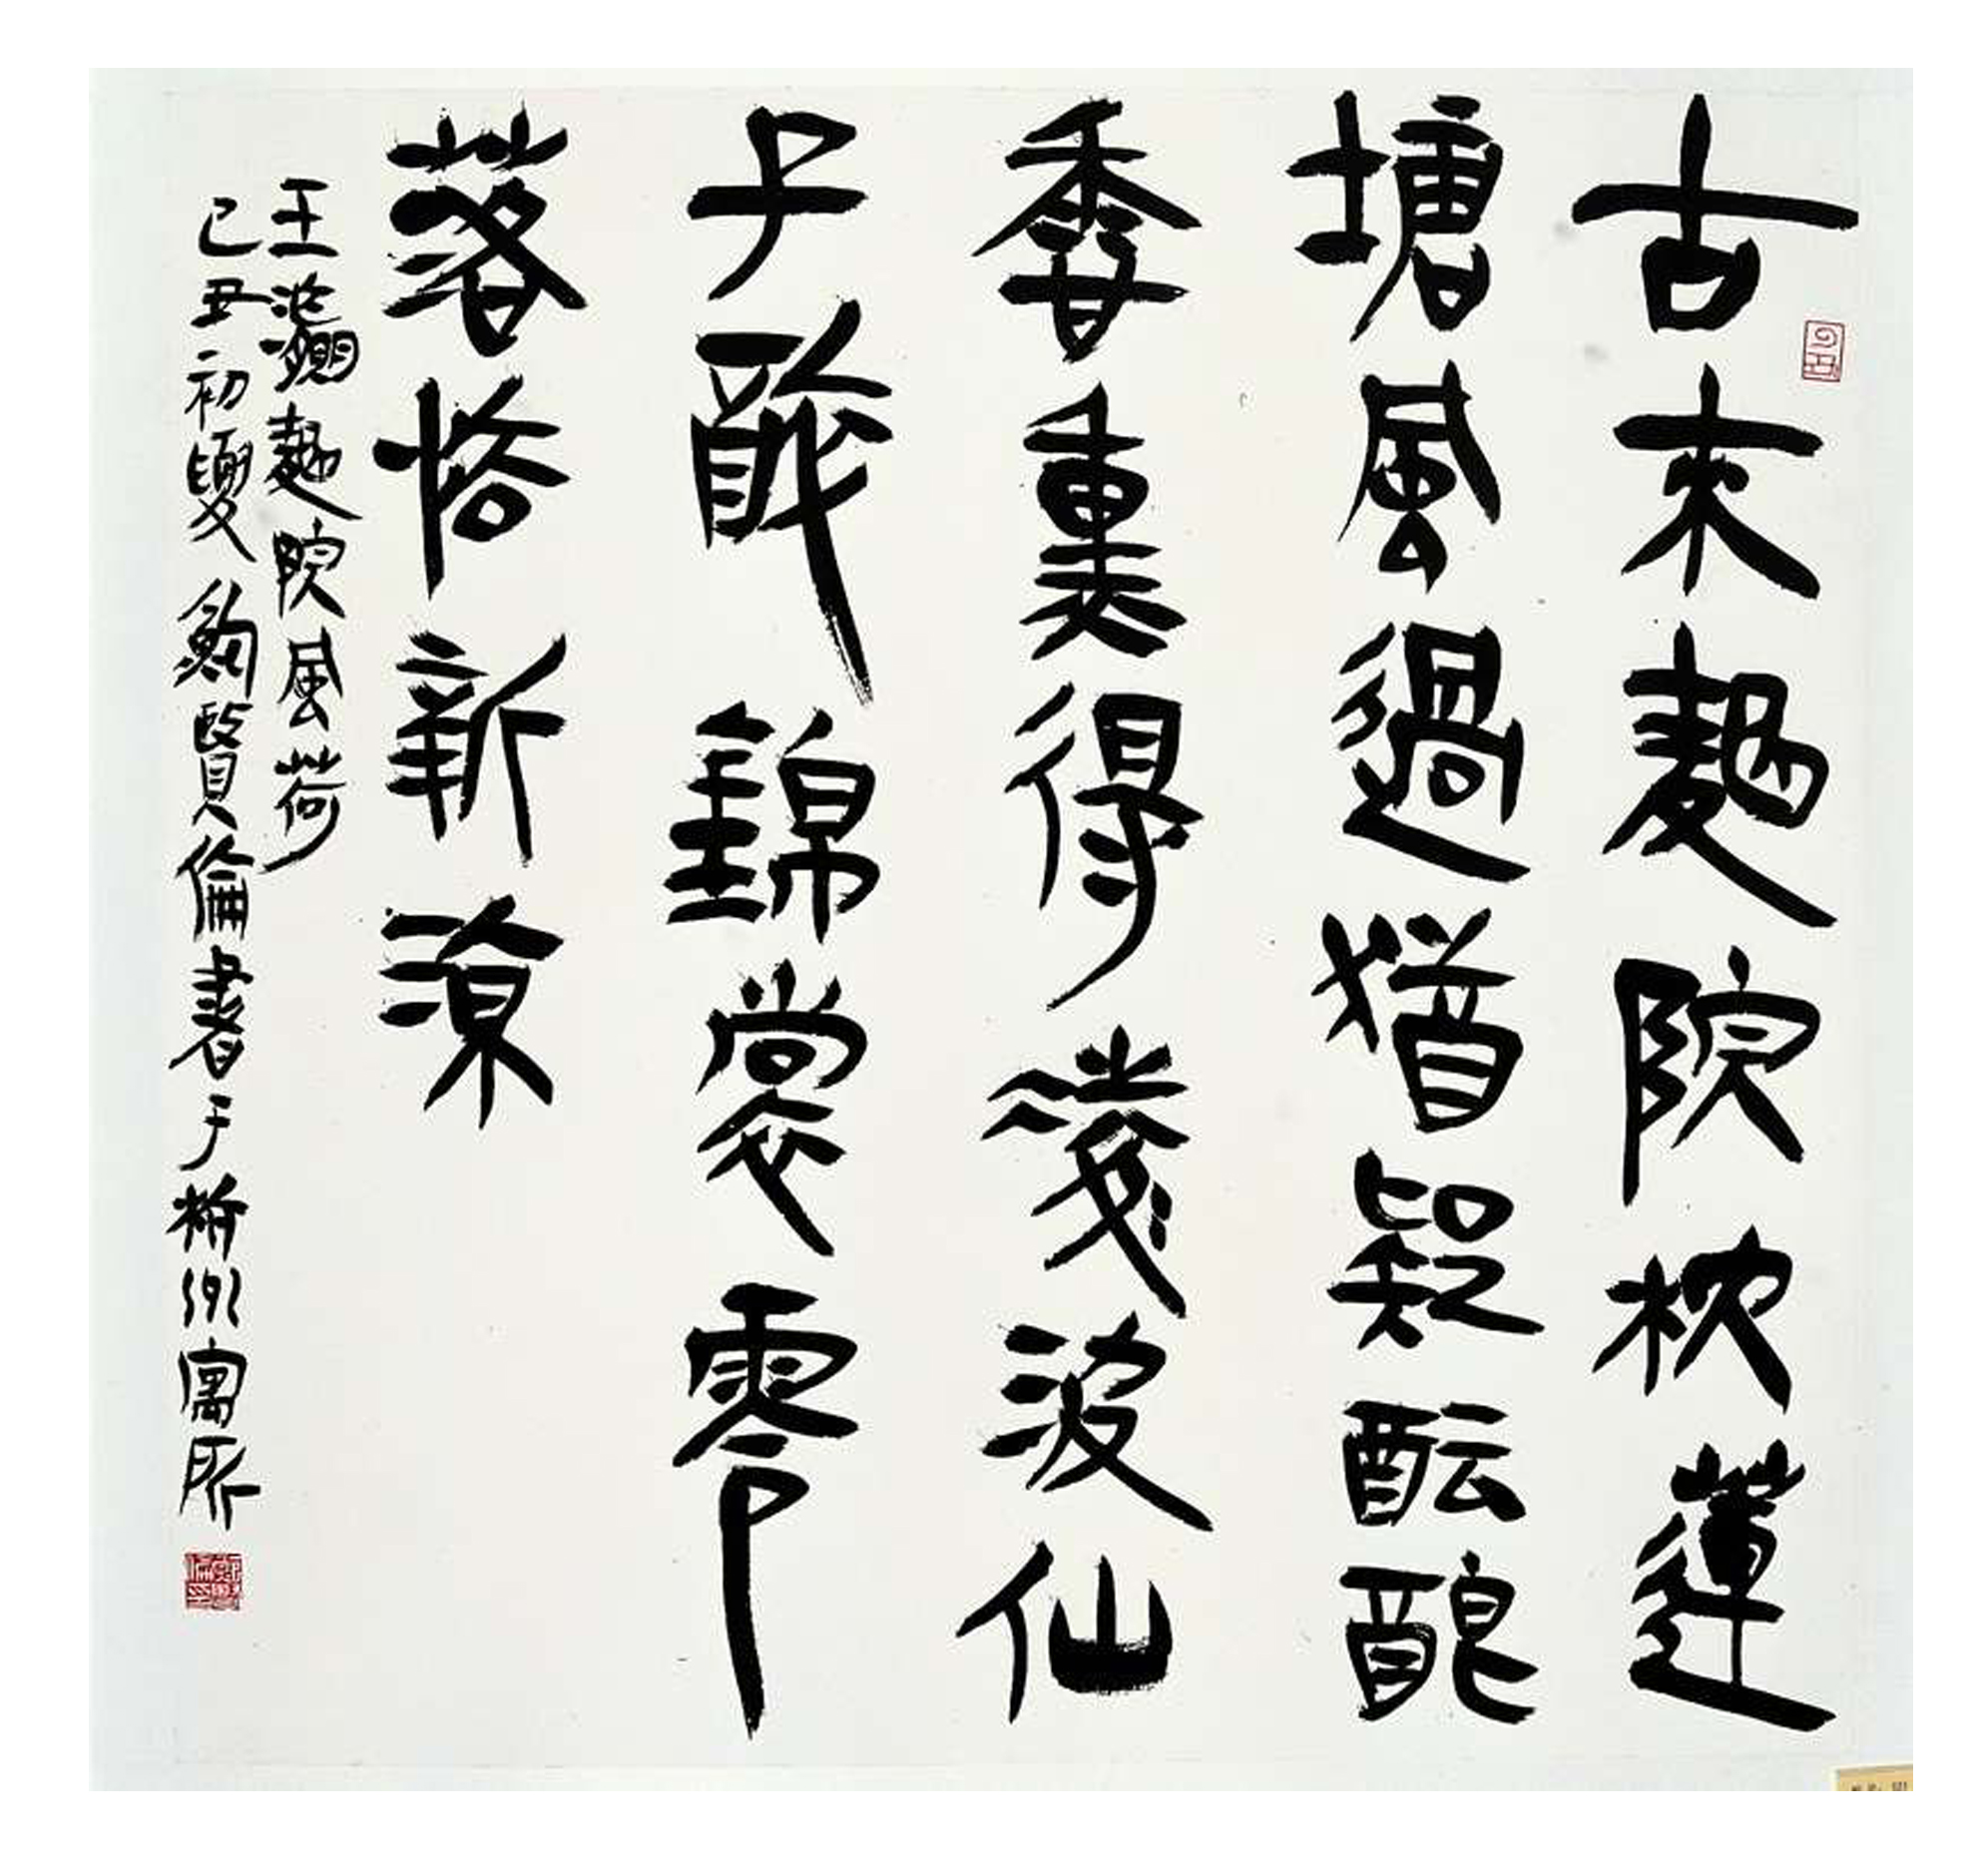 古來麯院枕蓮
塘風過猶疑酝酿
香熏得凌波仙
子醉錦裳零
落怯新涼
王瀛麯院風荷
己丑初夏鮑賢倫書于杭州寓所